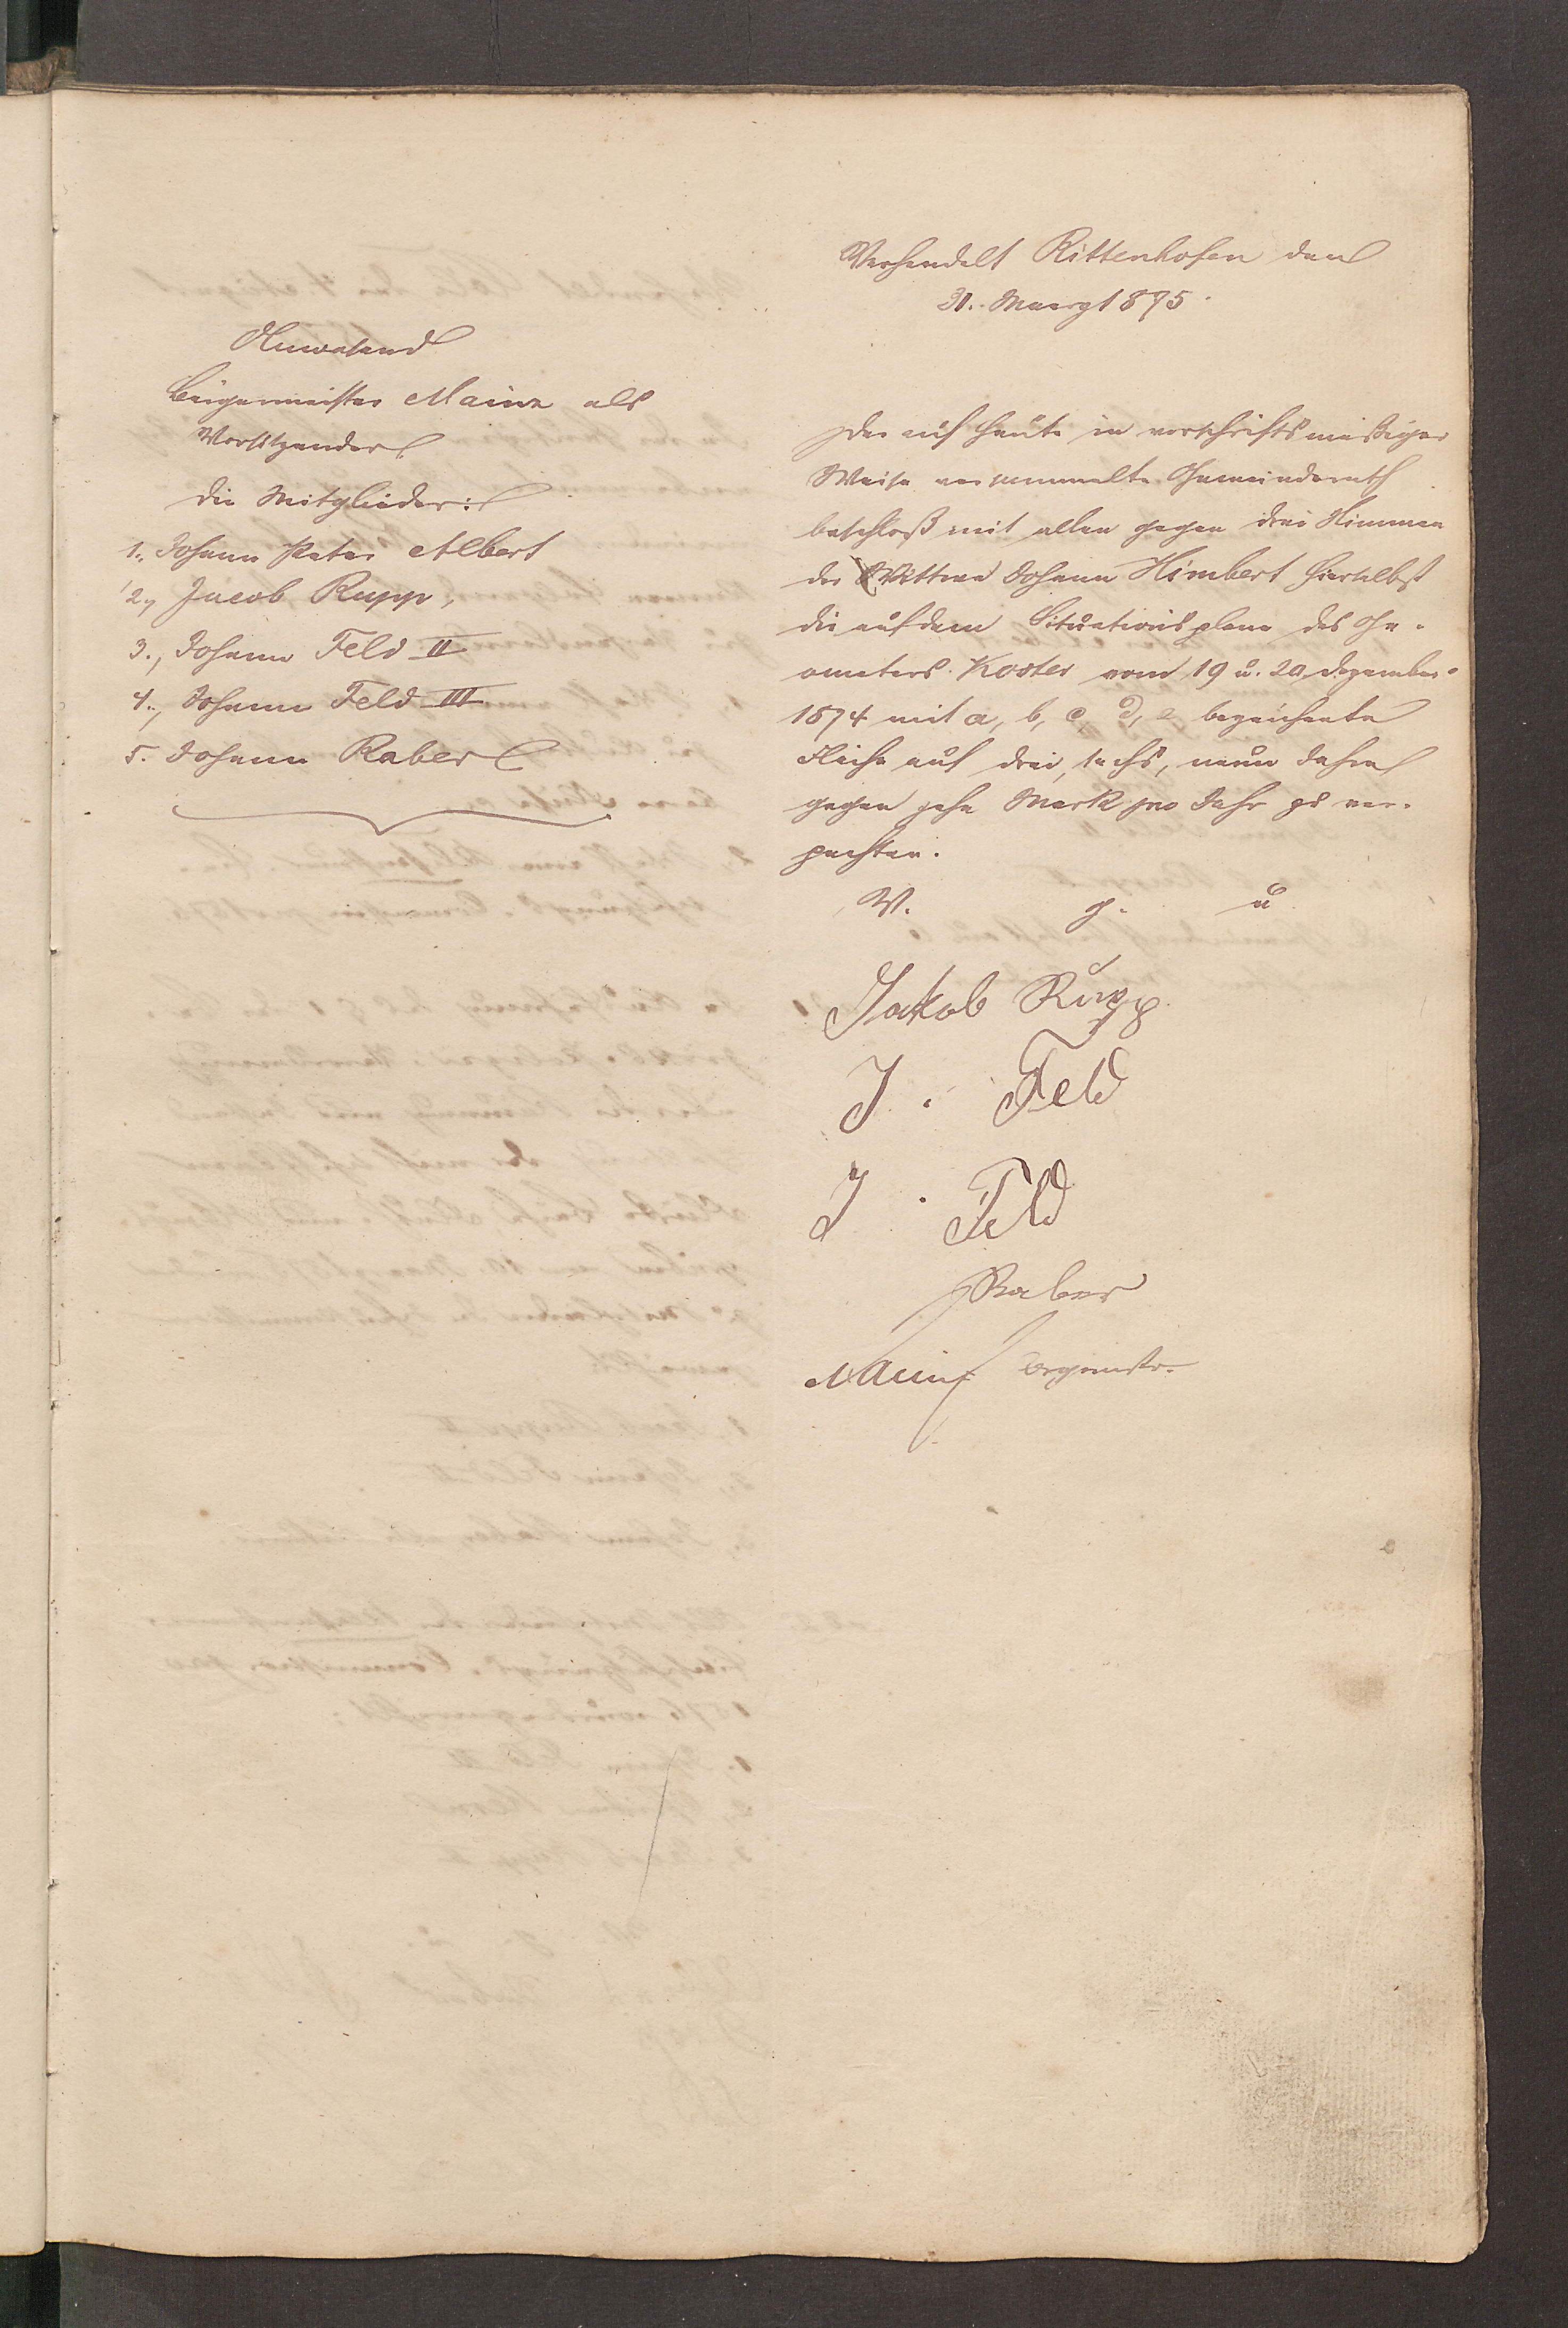 Verhandelt Rittenhofen den
31. Maerz 1875.
Anwesend
Bürgermeister Mainz als
Vorsitzender
die Mitglieder:
1., Johann Peter Albert
2., Jacob Rupp,
3., Johann Feld II
4., Johann Feld III
5. Johann Raber
Der auf heute in vorschriftsmäßiger
Weise versammelte Gemeinderath
beschloß mit allen gegen drei Stimmen
der Wittwe Johann Himbert hierselbst
die auf dem Situationsplane des Ge-
ometers Koster vom 19 u. 20 Dezember
1874 mit a, b, c, d, e bezeichnete
Fläche auf drei, sechs, neun Jahre
gegen zehn Mark pro Jahr zu ver-
pachten.
V. g. u
Jakob Rupp
J. Feld
J. Feld
Raber
Mainz Brgmstr.